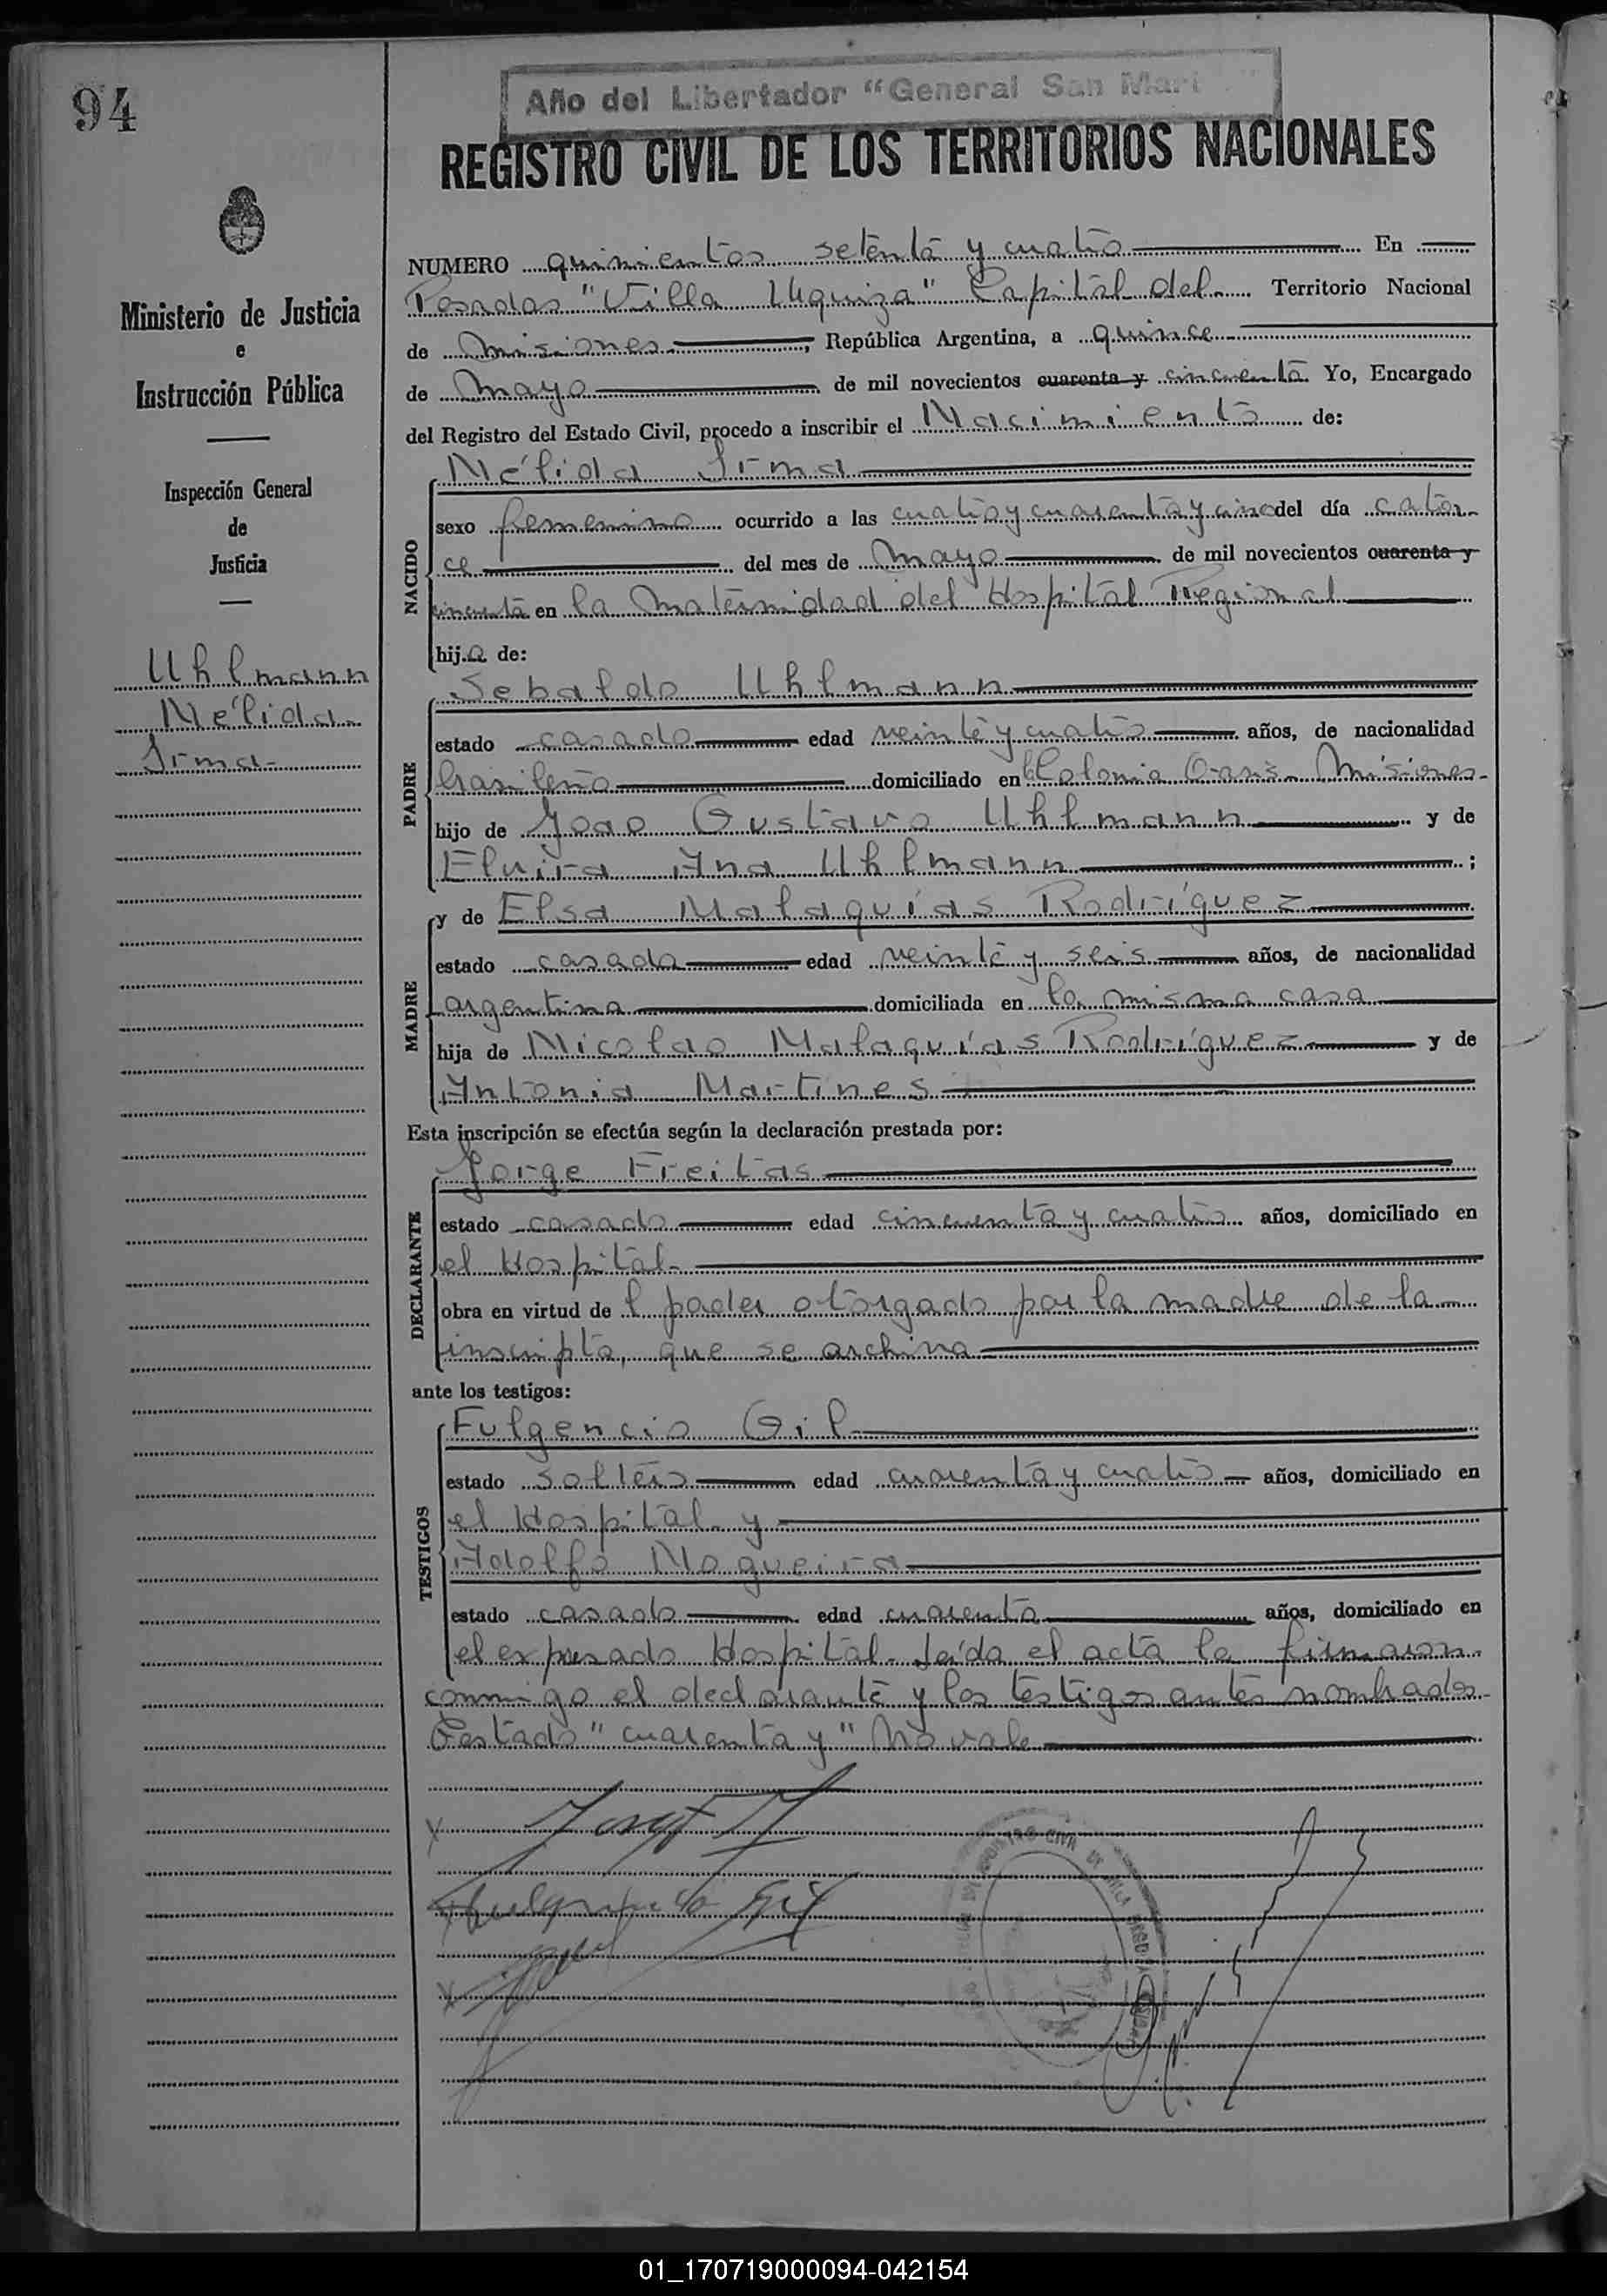 94
Año del Libertador "General San Mart
REGISTRO CIVIL DE LOS TERRITORIOS NACIONALES
Ministerio de Justicia
e
Instrucción Pública
Inspección General
de
Justicia
Uhlmann
Nélida
Irma-
NUMERO quinientos setenta y cuatro En
Posadas "Villa Urquiza" Capital del Territorio Nacional
de Misiones, República Argentina, a quince
de mayo de mil novecientos cuarenta y cincuenta Yo, Encargado
del Registro del Estado Civil, procedo a inscribir el Nacimiento de:
NACIDO
Nélida Irma
sexo femenino ocurrido a las cuatro y cuarenta y cinco del día cator-
ce del mes de mayo de mil novecientos cuarenta y
cincuenta en la Maternidad del Hospital Regional
hija de:
PADRE
Sebaldo Uhlmann
estado casado edad veinte y cuatro años, de nacionalidad
brasileño domiciliado en Colonia Oasis- Misiones-
hijo de Joao Gustavo Uhlmann y de
Elvira Ana Uhlmann ;
MADRE
y de Elsa Malaquías Rodríguez
estado casada edad veinte y seis años, de nacionalidad
argentina domiciliada en la misma casa
hija de Nicolao Malaquías Rodríguez y de
Antonia Martines
Esta inscripción se efectúa según la declaración prestada por:
DECLARANTE
Jorge Freitas
estado casado edad cincuenta y cuatro años, domiciliado en
el Hospital-
obra en virtud de l poder otorgado por la madre de la
inscripta, que se archiva
ante los testigos:
TESTIGOS
Fulgencio Gil
estado soltero edad cuarenta y cuatro años, domiciliado en
el Hospital y
Adolfo Nogueira
estado casado edad cuarenta años, domiciliado en
el expresado Hospital- Leída el acta la firmaron
conmigo el declarante y los testigos antes nombrados-
Testado "cuarenta y" No vale
Fulgencio Gil
01_170719000094-042154